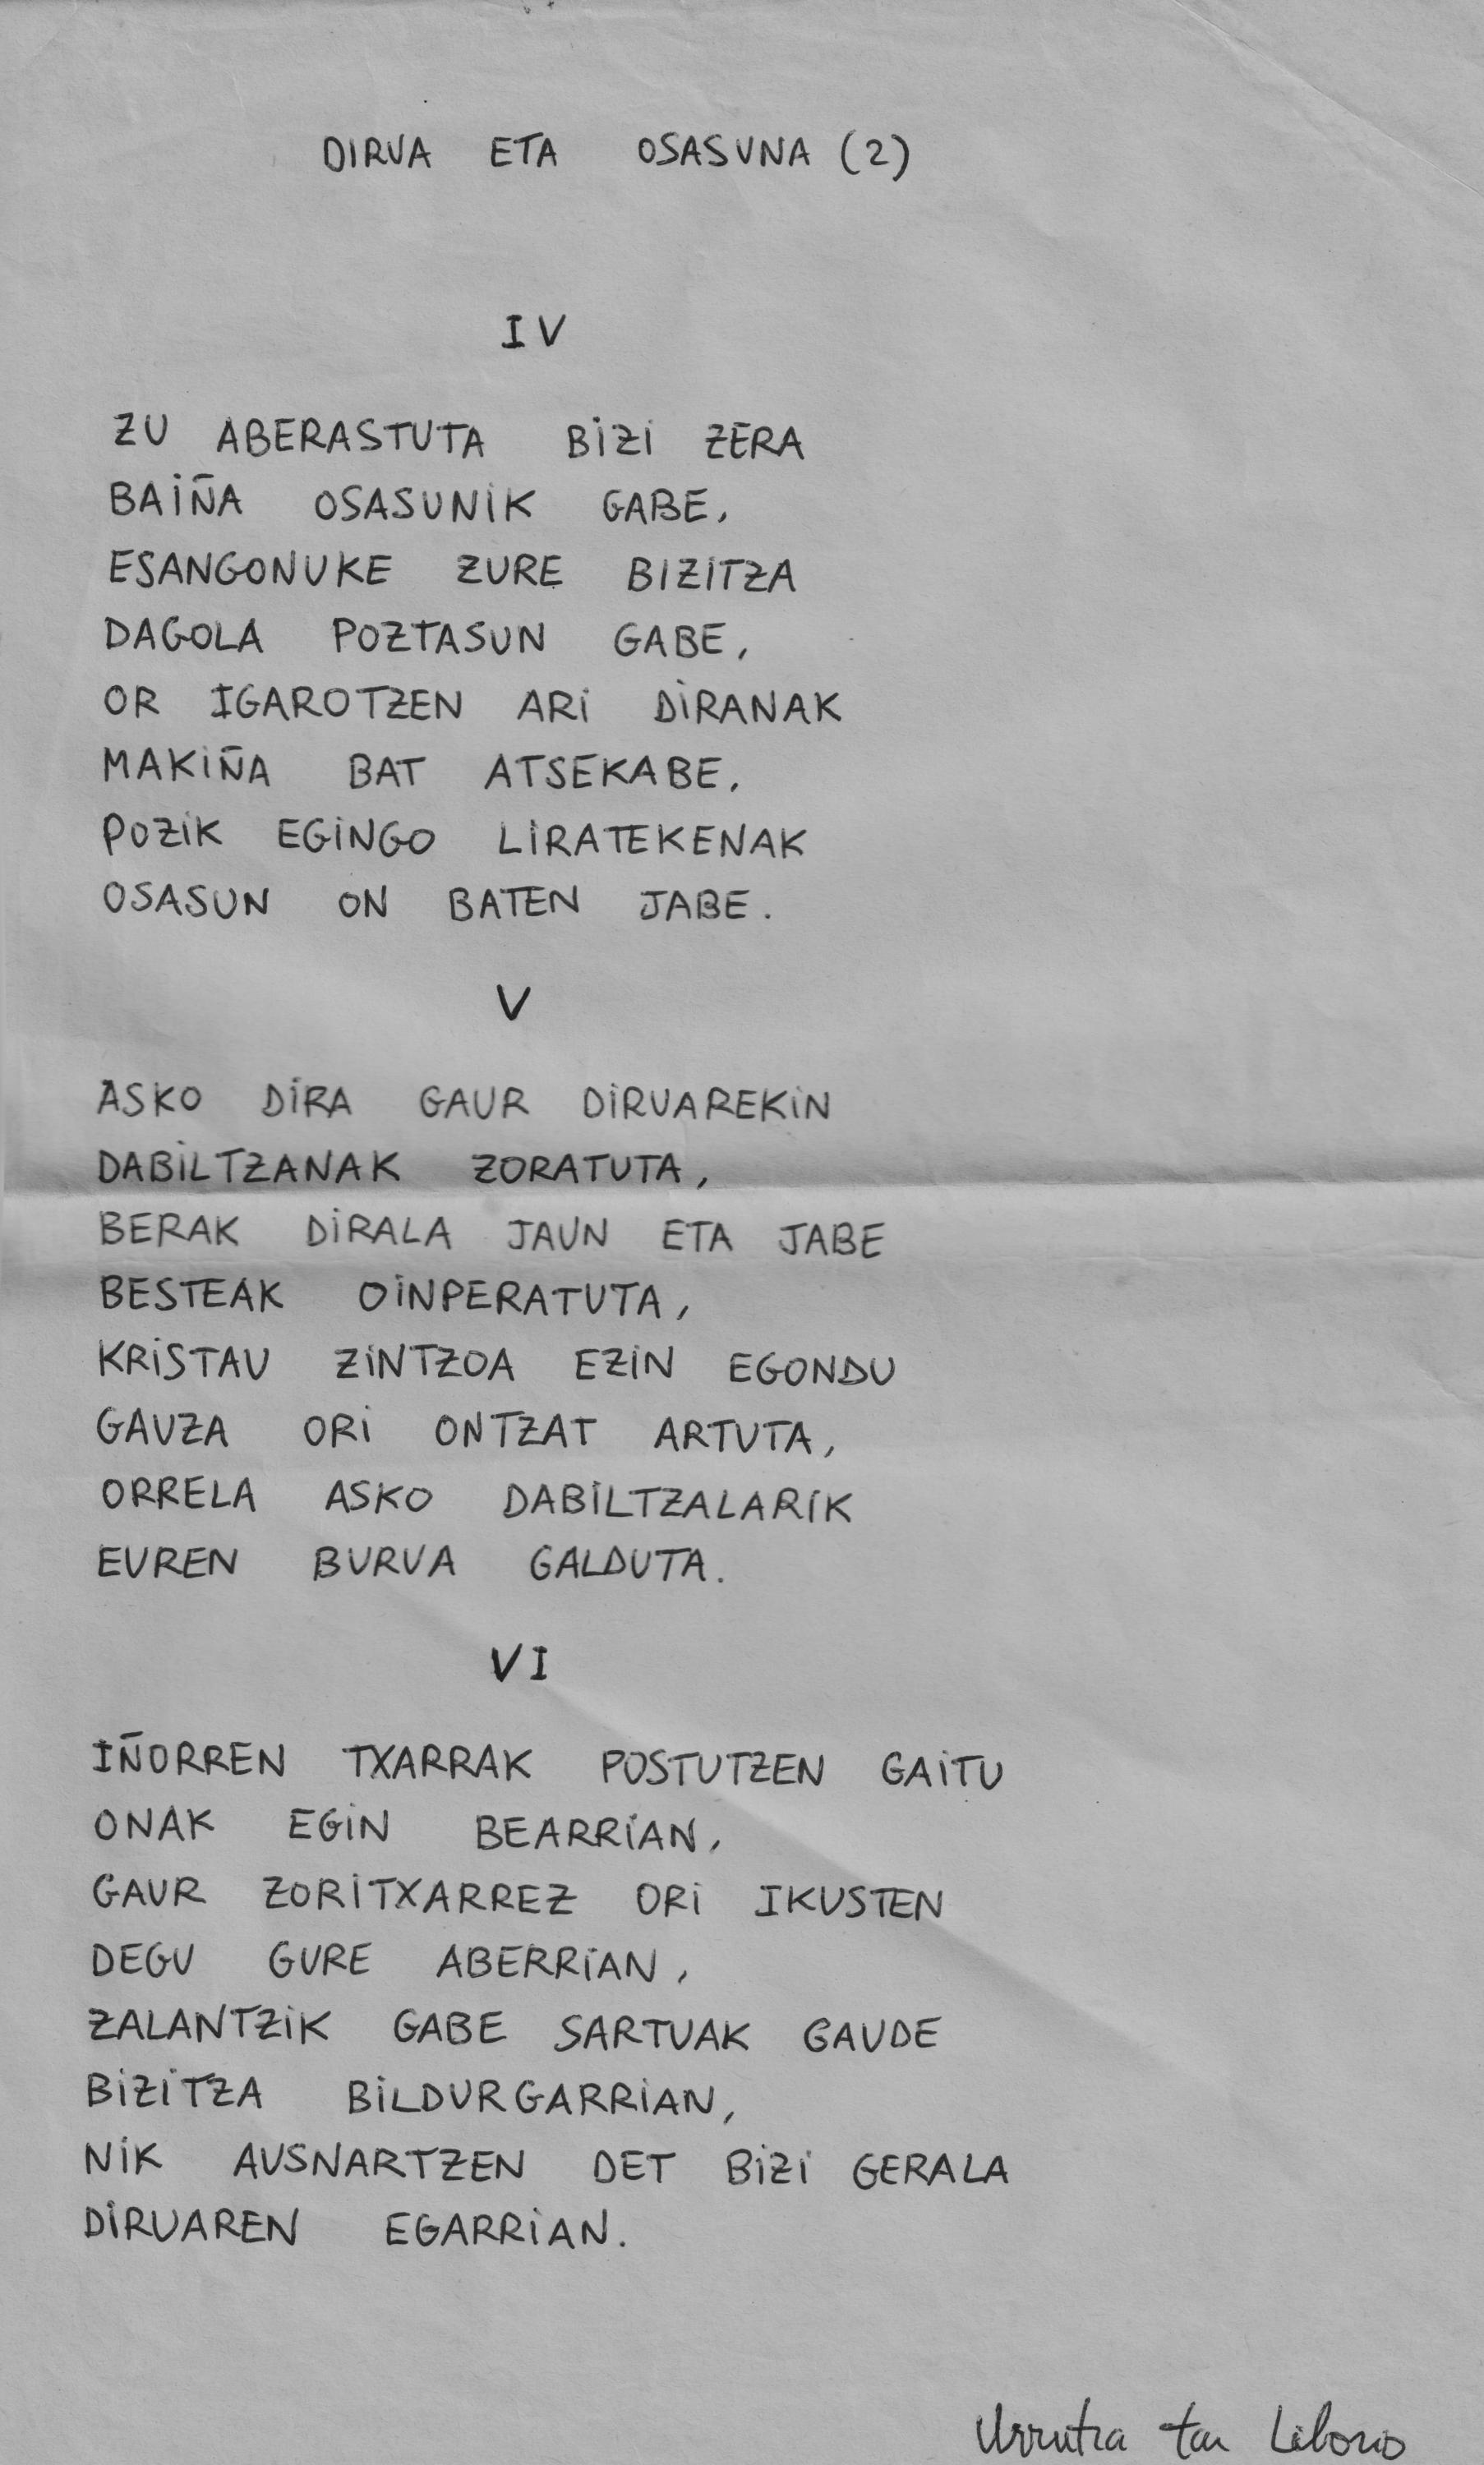 DIRUA ETA OSASUNA (2)
IV
ZU ABERASTUTA BIZI ZERA
BAIÑA OSASUNIK GABE,
ESANGONUKE ZURE BIZITZA
DAGOLA POZTASUN GABE,
OR IGAROTZEN ARI DIRANAK
MAKIÑA BAT ATSEKABE,
POZIK EGINGO LIRATEKENAK
OSASUN ON BATEN JABE.
V
ASKO DIRA GAUR DIRUAREKIN
DABILTZANAK ZORATUTA,
BERAK DIRALA JAUN ETA JABE
BESTEAK OINPERATUTA,
KRISTAU ZINTZOA EZIN EGONDU
GAUZA ORI ONTZAT ARTUTA,
ORRELA ASKO DABILTZALARIK
EUREN BURUA GALDUTA.
VI
IÑORREN TXARRAK POSTUTZEN GAITU
ONAK EGIN BEARRIAN,
GAUR ZORITXARREZ ORI IKUSTEN
DEGU GURE ABERRIAN,
ZALANTZIK GABE SARTUAK GAUDE
BIZITZA BILDURGARRIAN,
NIK AUSNARTZEN DET BIZI GERALA
DIRUAREN EGARRIAN.
Urrutia tar Liborio